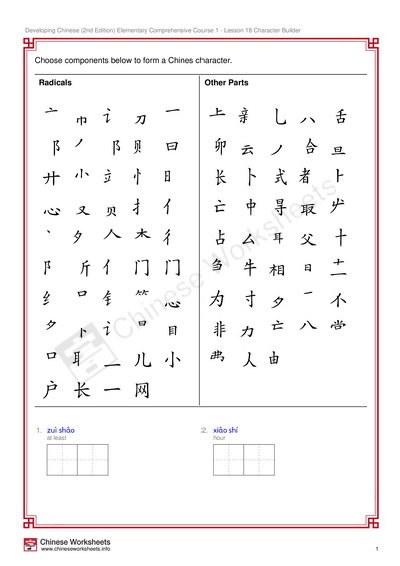 Developing Chinese (2nd Edition) Elementary Comprehensive Course 1 - Lesson 18 Character Builder
Choose components below to form a Chines character.
Radicals
亠 巾 讠 刀 一
阝 丿 阝 贝 曰
廾 小 立 忄 日
心 又 贝 扌 亻
丶 夕 人 木 彳
阝 斤 亻 门 门
纟 口 钅 ⺮ 心
夕 卜 讠 口 目
口 耳 一 儿 小
户 长 一 网
Other Parts
上 亲 乚 八 舌
卯 云 丿 合 旦
长 卜 式 者 ⺊
亡 中 寻 取
占 厶 耳 父 十
刍 牛 相 日
为 寸 夕 乛 不
非 力 亡 八
人 由
Chinese Worksheets
1. zuì shǎo
at least
2. xiǎo shí
hour
Chinese Worksheets
www.chineseworksheets.info
1